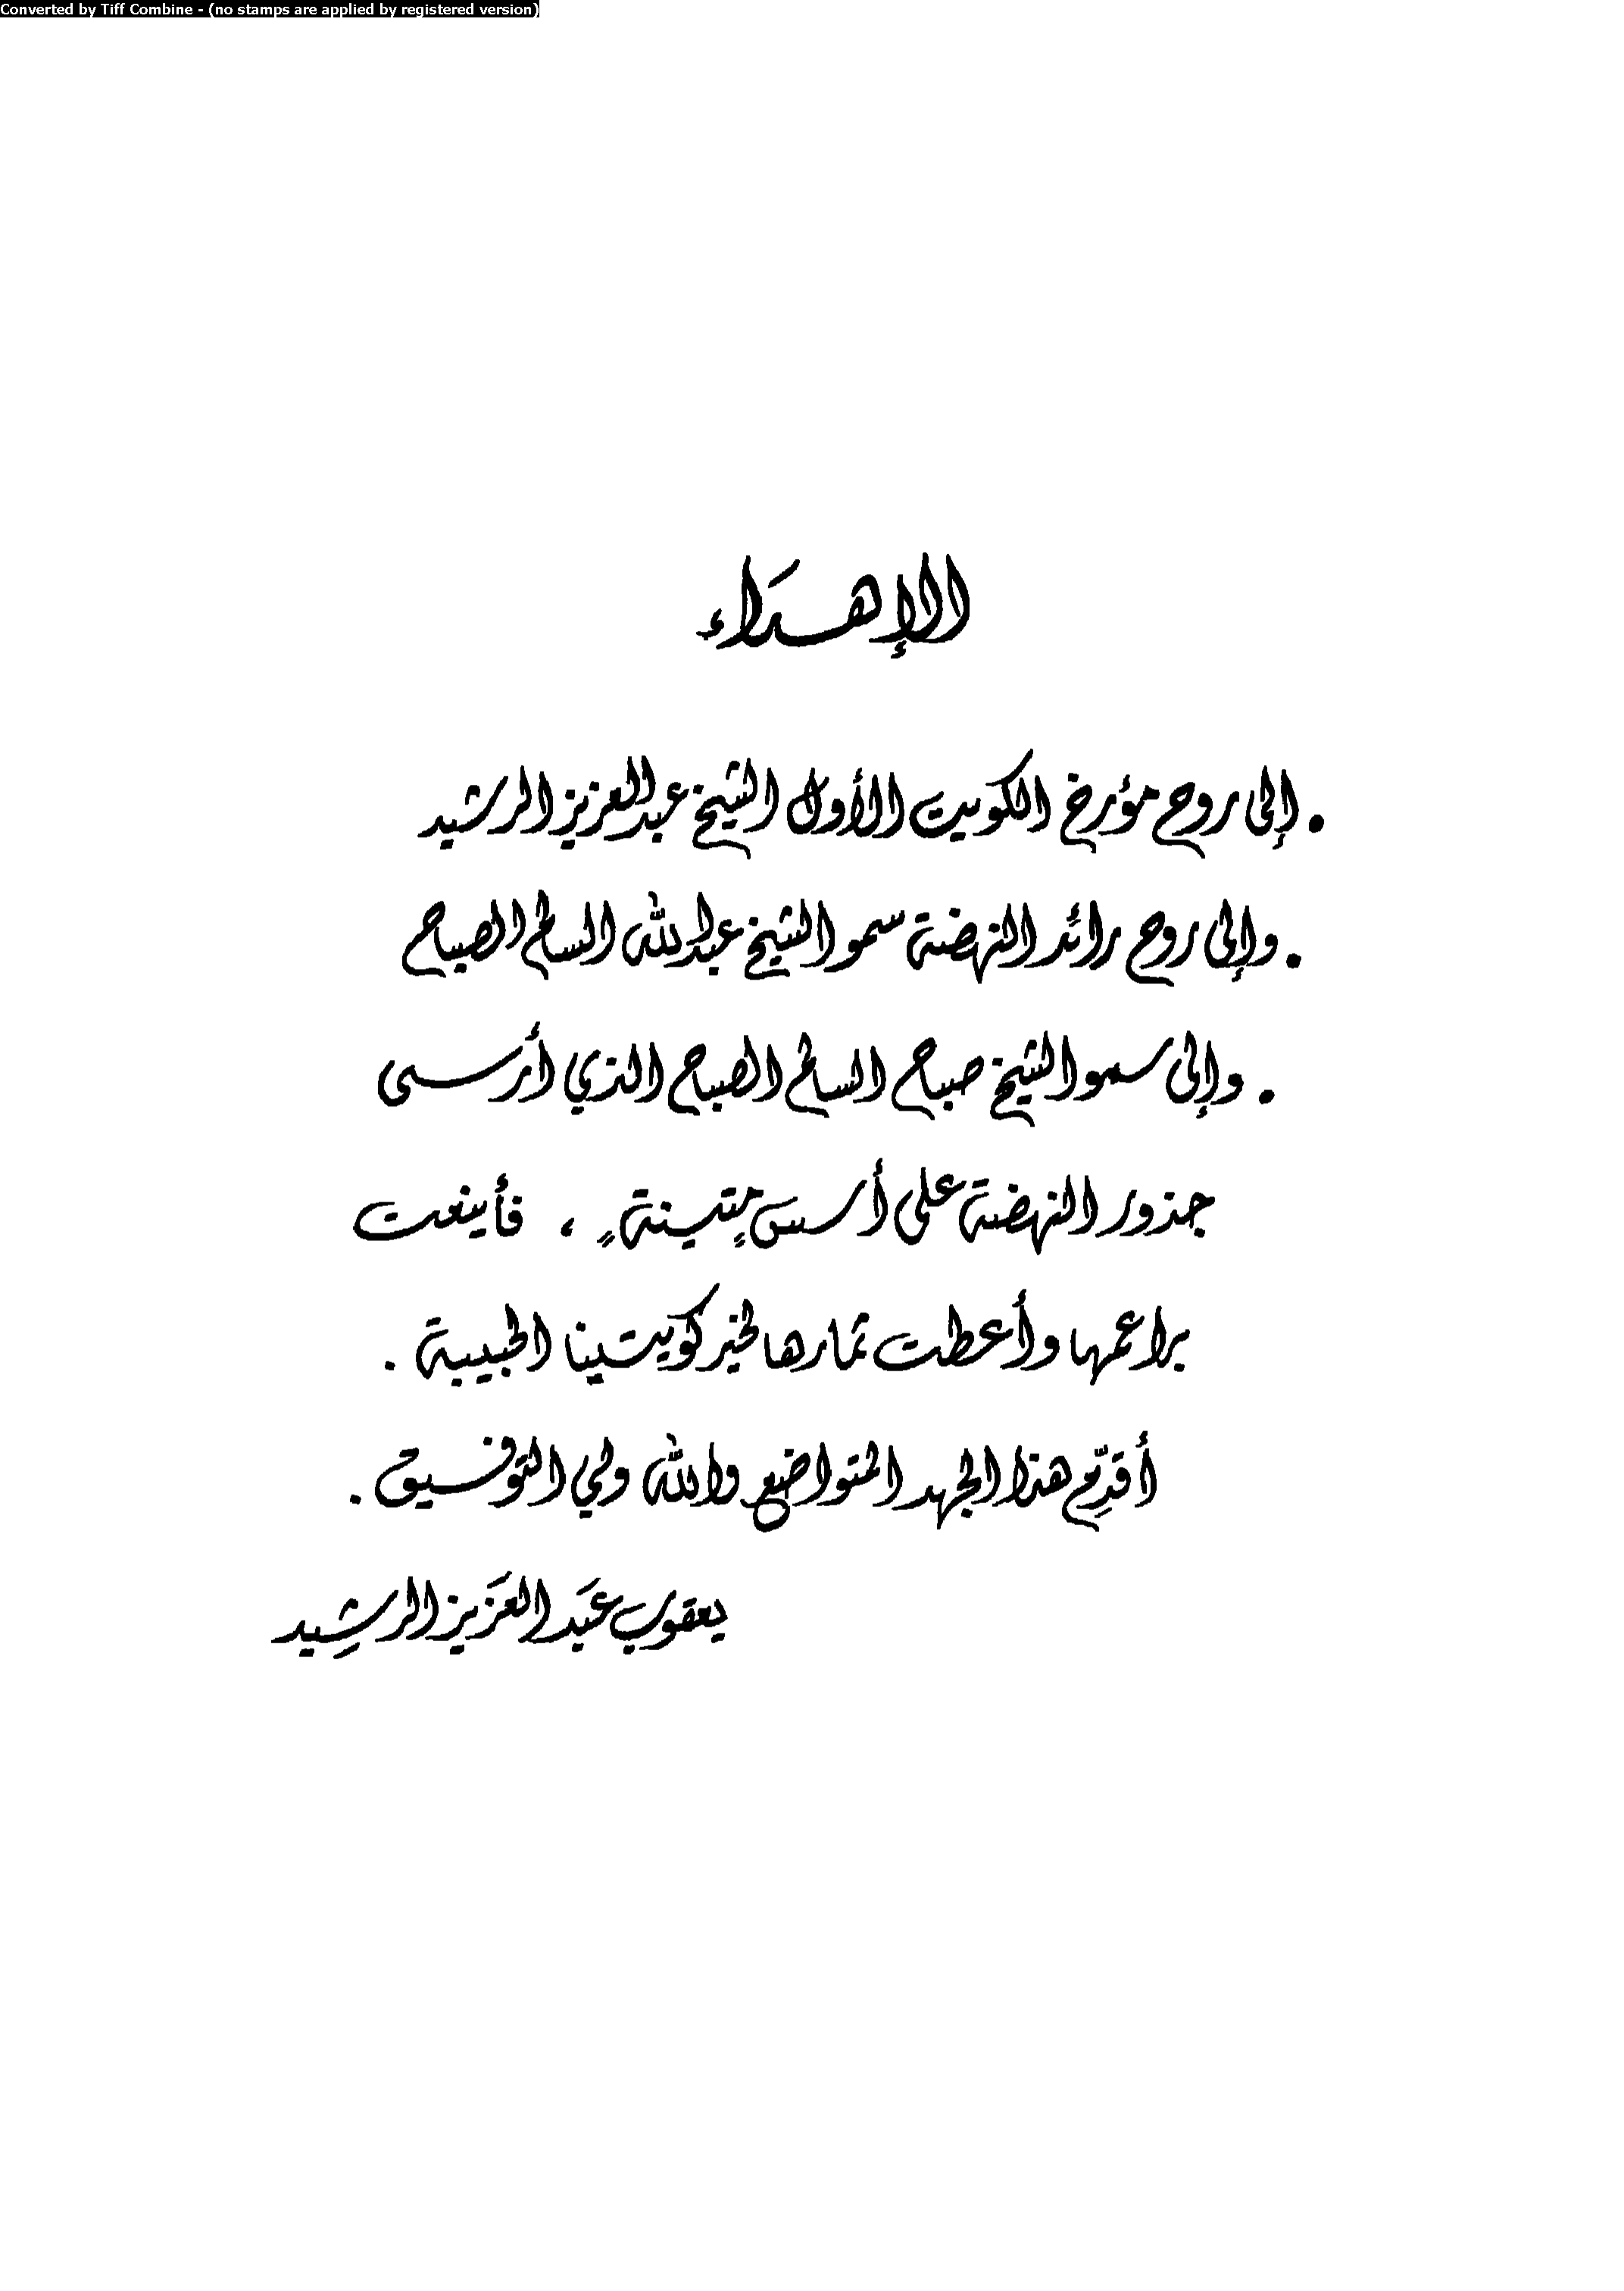 Converted by Tiff Combine - (no stamps are applied by registered version)
الإهداء
• إلى روح مؤرخ الكويت الأول الشيخ عبدالعزيز الرشيد
• وإلى روح رائد النهضة سمو الشيخ عبدالله السالم الصباح
• وإلى سمو الشيخ صباح السالم الصباح الذي أرسى
جذور النهضة على أسس متينةٍ ، فأينعت
براعمها وأعطت ثمارها لخير كويتينا الحبيبة .
أقدِّم هذا الجهد المتواضع والله ولي التوفيق .
يعقوب عَبد العَزيز الرشِيد